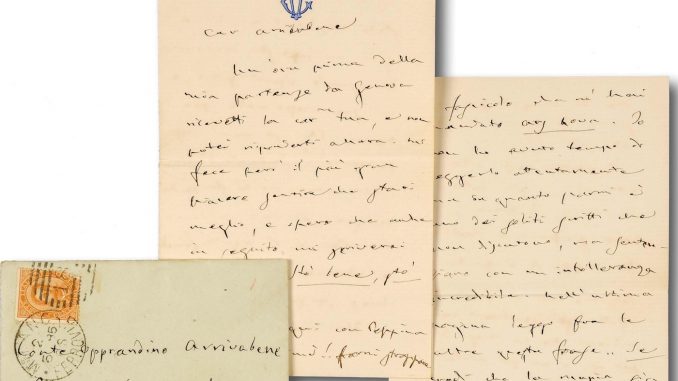 Car Arrivabene
Un'ora prima della
mia partenza da Genova
ricevetti la car.ma tua, e non
potei risponderti allora: mi
fece però il più gran
piacere sentire che stavi
meglio, e spero che anche
in seguito mi scriverai
bene, stò
qui con Peppina
fascicolo che m'hai
mandato ars nova. Io
non ho avuto tempo di
leggerlo attentamente
ma su quanto parmi è
uno dei soliti scritti che
non discutono, ma senten-
ziano con un'intolleranza
incredibile. Nell'ultima
pagina leggo fra le
altre questa frase.. Se
che la musica
Conte Opprandino Arrivabene